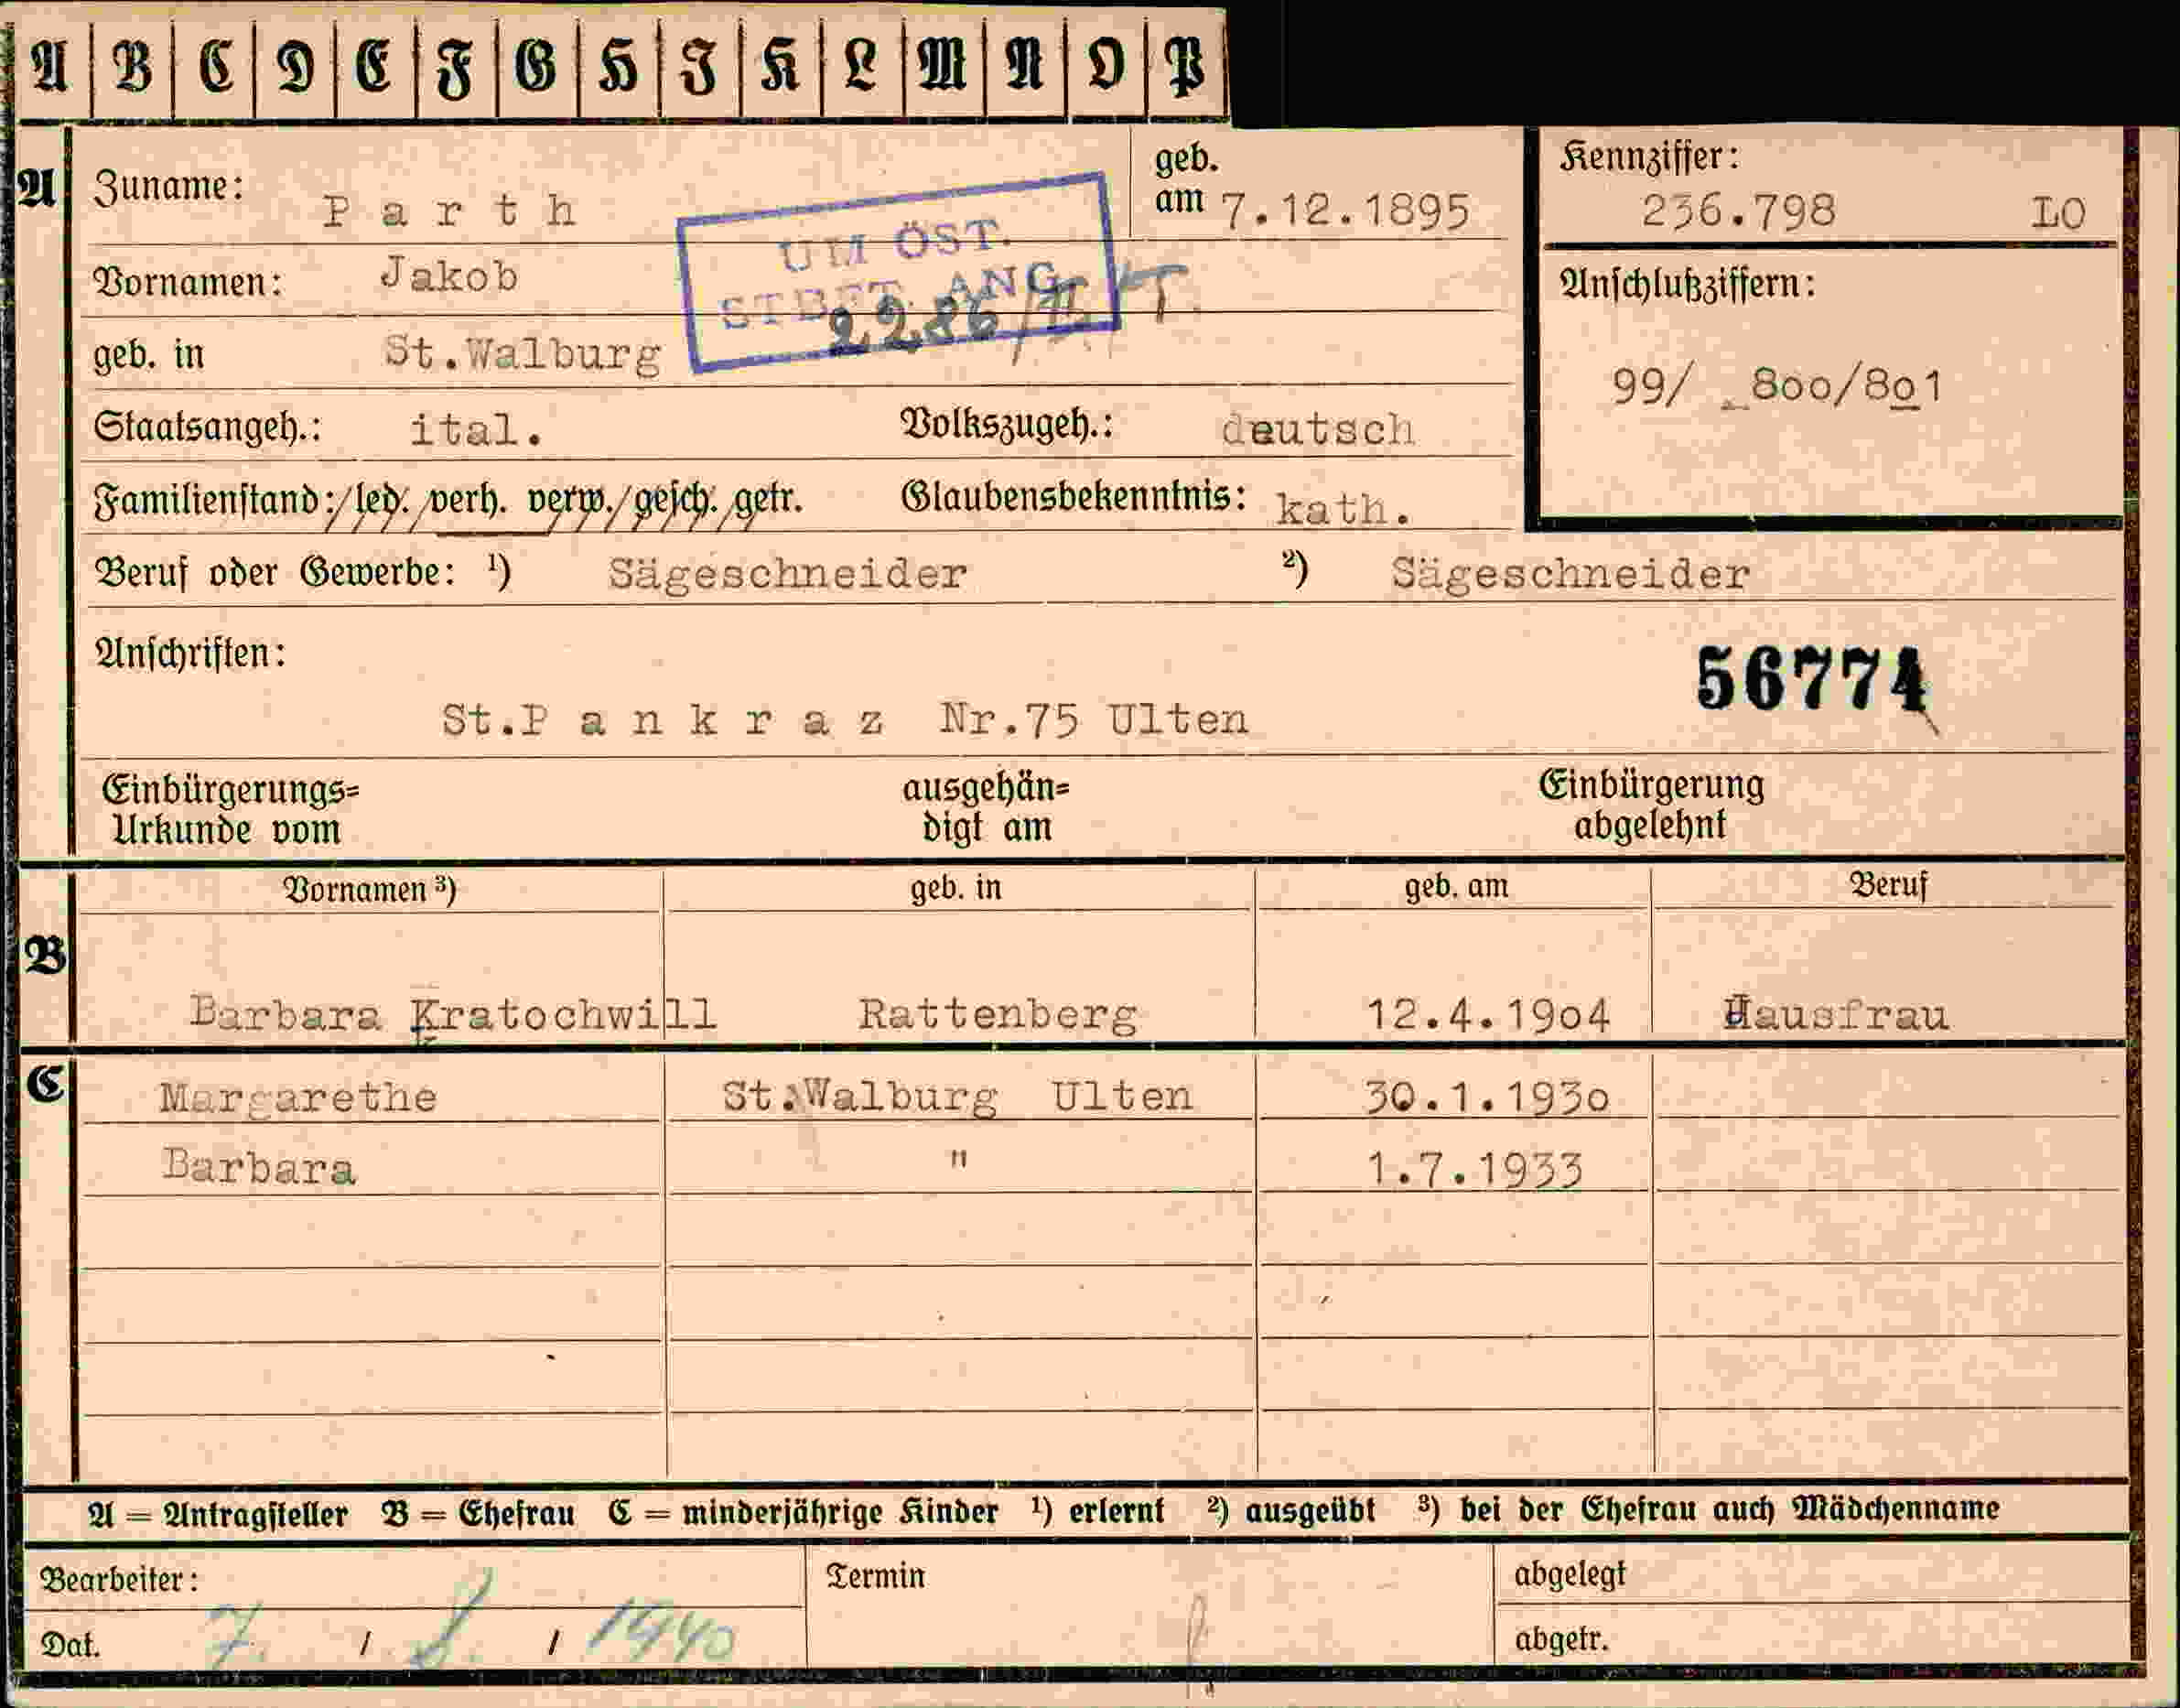 A B C D E F G H I K L M N O P
A Zuname: Parth geb. am 7.12.1895 Kennziffer: 236.798 LO
UM ÖST.
STBFT. ANG
2286/III
Vornamen: Jakob Anschlußziffern:
geb. in St.Walburg 99/ 800/801
Staatsangeh.: ital. Volkszugeh.: deutsch
Familienstand: led. verh. verw. gesch. getr. Glaubensbekenntnis: kath.
Beruf oder Gewerbe: ¹) Sägeschneider ²) Sägeschneider
Anschriften: 56774
St.Pankraz Nr.75 Ulten
Einbürgerungs= ausgehän= Einbürgerung
Urkunde vom digt am abgelehnt
Vornamen ³) geb. in geb. am Beruf
B
Barbara Kratochwill Rattenberg 12.4.1904 Hausfrau
C Margarethe St.Walburg Ulten 30.1.1930
Barbara " 1.7.1933
A = Antragsteller B = Ehefrau C = minderjährige Kinder ¹) erlernt ²) ausgeübt ³) bei der Ehefrau auch Mädchenname
Bearbeiter: Termin abgelegt
Dat. 7. / 8. / 1940 abgetr.